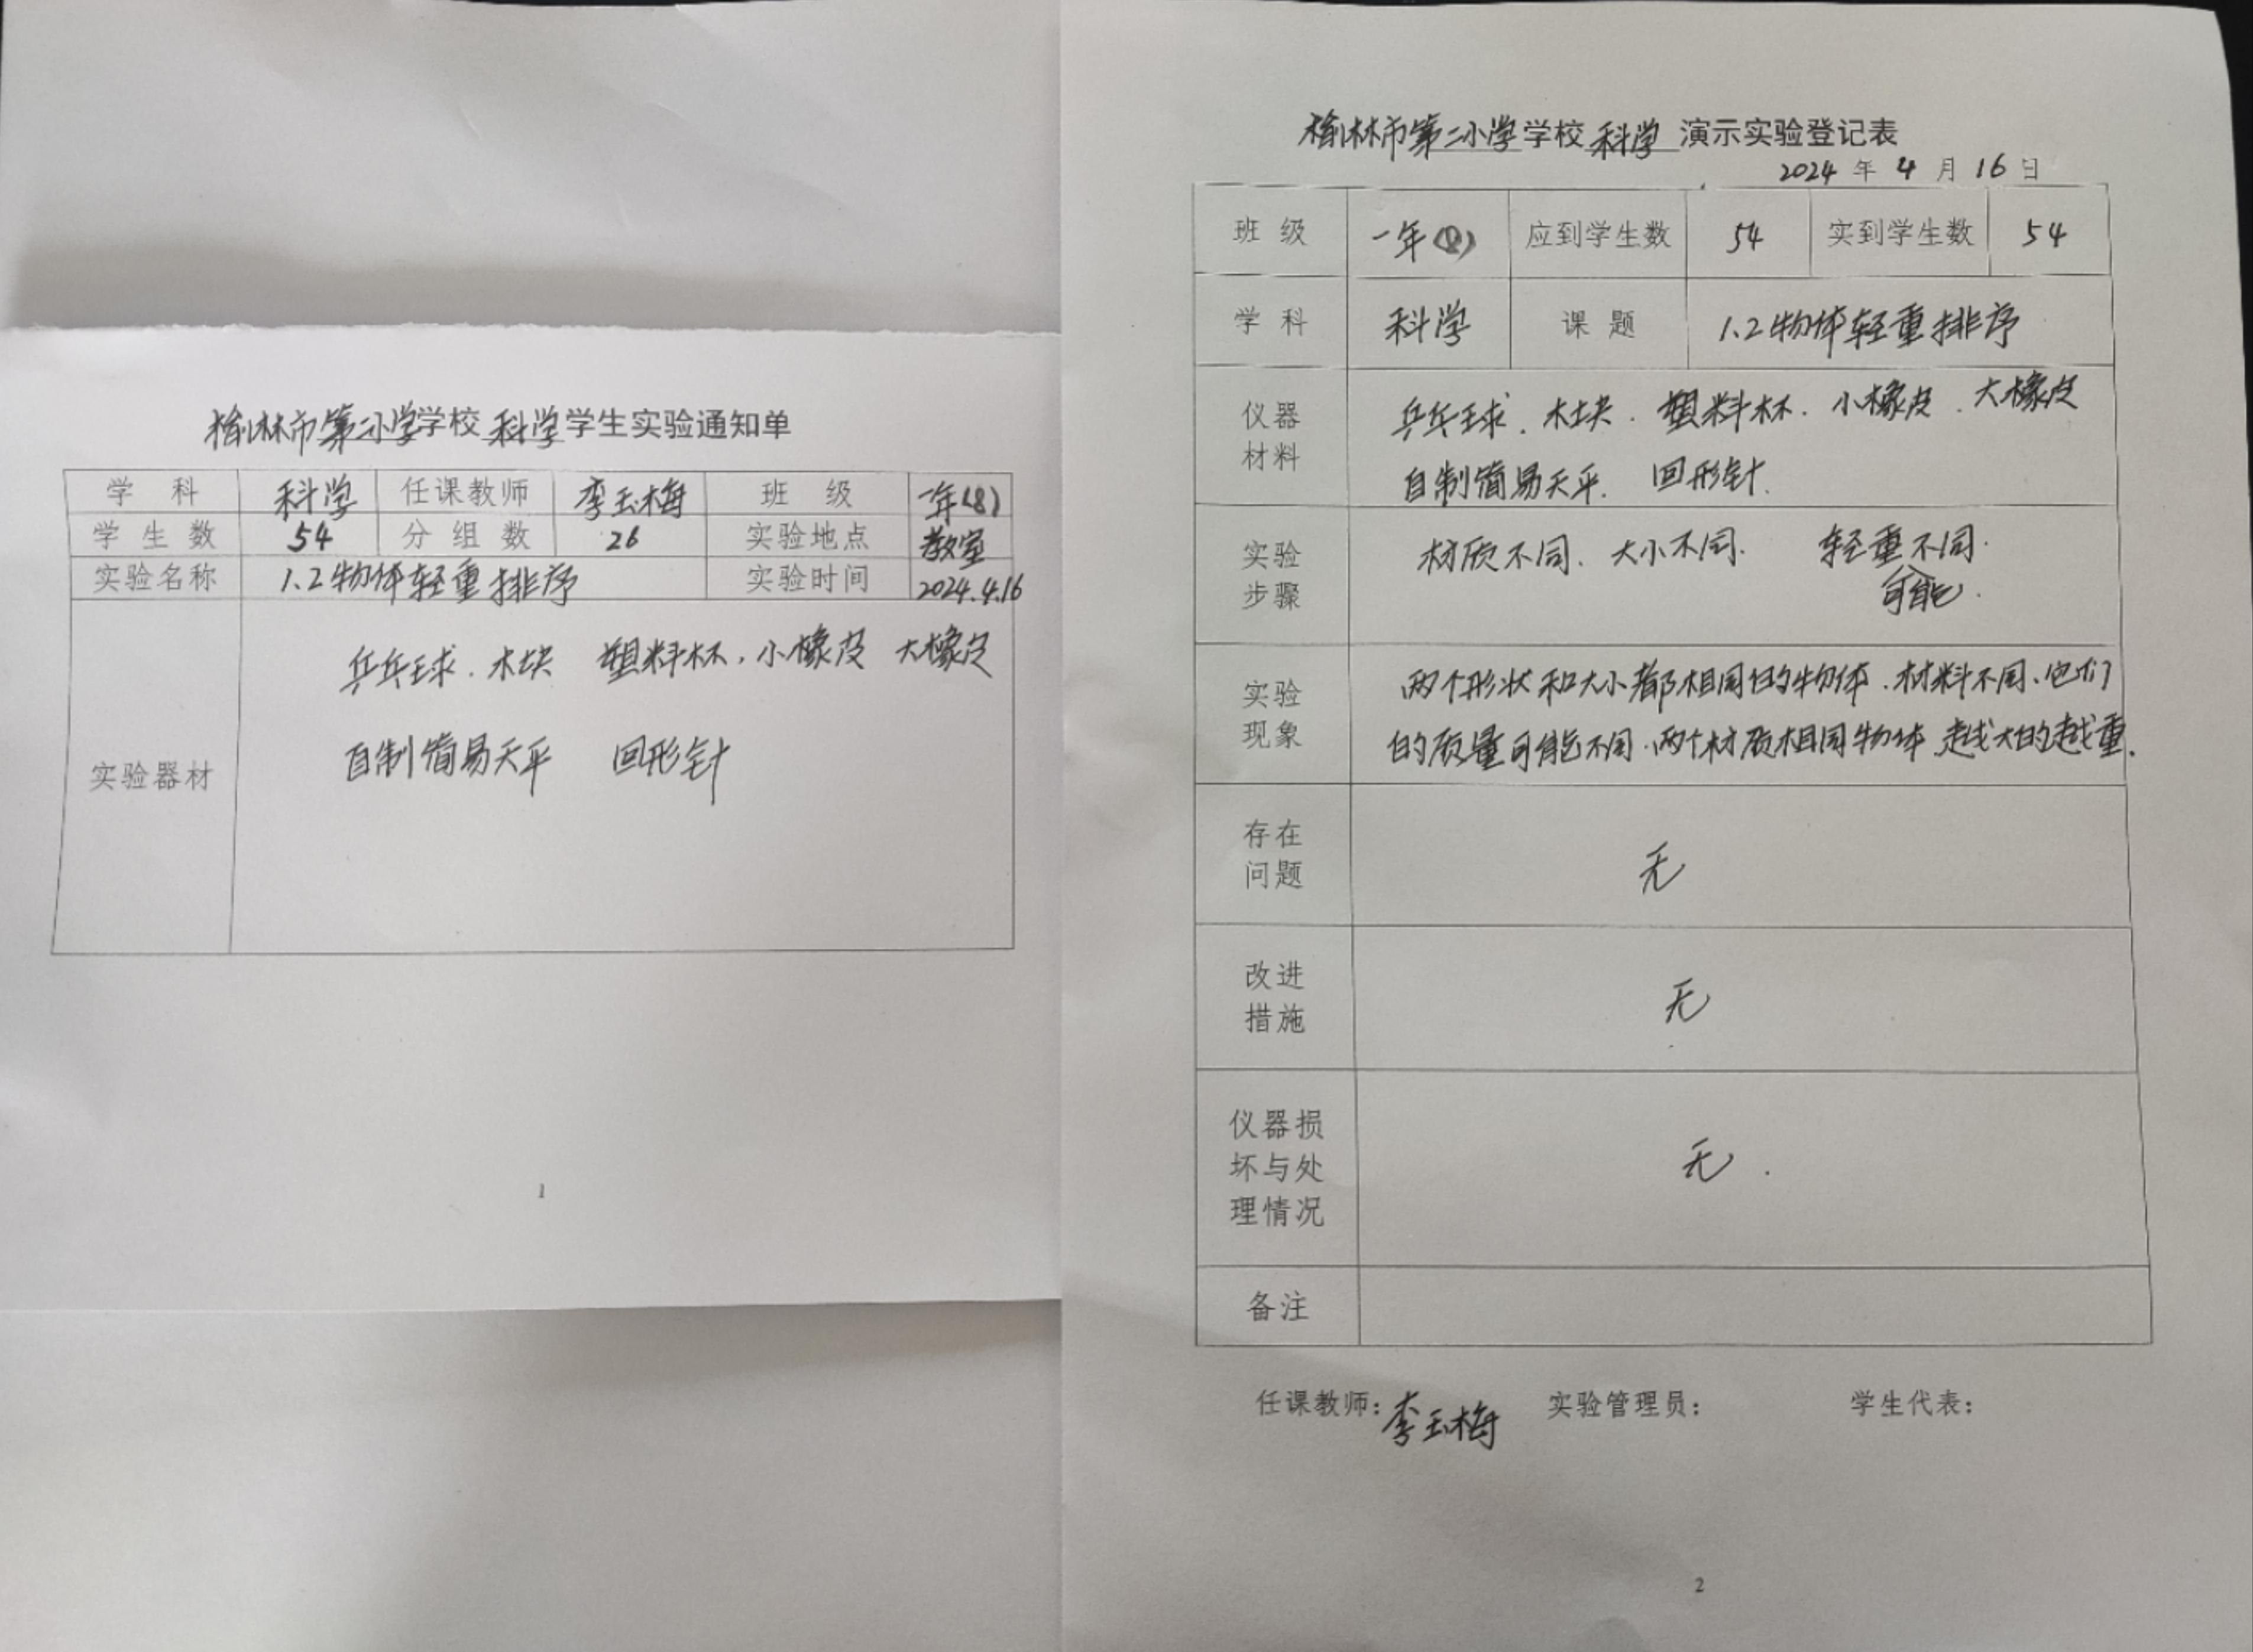 榆林市第二小学学校 科学 学生实验通知单
学 科 科学 任课教师 李玉梅 班 级 一年(8)
学 生 数 54 分 组 数 26 实验地点 教室
实验名称 1.2物体轻重排序 实验时间 2024.4.16
实验器材
乒乓球、木块 塑料杯、小橡皮 大橡皮
自制简易天平 回形针
1
榆林市第二小学学校 科学 演示实验登记表
2024 年 4 月 16 日
班 级 一年(8) 应到学生数 54 实到学生数 54
学 科 科学 课 题 1.2物体轻重排序
仪器
材料
乒乓球、木块、塑料杯、小橡皮、大橡皮
自制简易天平、回形针.
实验
步骤
材质不同、大小不同. 轻重不同.
可能.
实验
现象
两个形状和大小都相同的物体、材料不同、它们
的质量可能不同.两个材质相同物体 越大的越重.
存在
问题
无
改进
措施
无
仪器损
坏与处
理情况
无.
备注
任课教师：李玉梅 实验管理员： 学生代表：
2